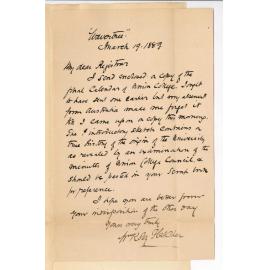 "Wavertree"
March 19. 1889
My dear Registrar
I send enclosed a copy of the
final Calendar of Union College. I ought
to have sent one earlier but my removal
from Australia made me forget it
till I came upon a copy this morning.
The introductory sketch contains a
true history of the origin of the University
as revealed by an examination of the
minutes of Union College Council, &
should be pasted in your Scrap book
for reference.
I hope you are better from
your indisposition of the other day
Yours very truly
Fletcher